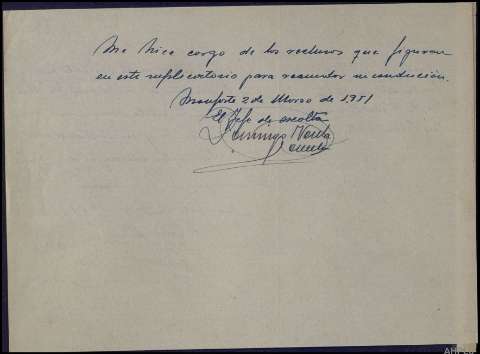 Me hice cargo de los reclusos que figuran
en este suplicatorio para reanudar su conducción.
Monforte 2 de Marzo de 1951
El Jefe de escolta
Domingo